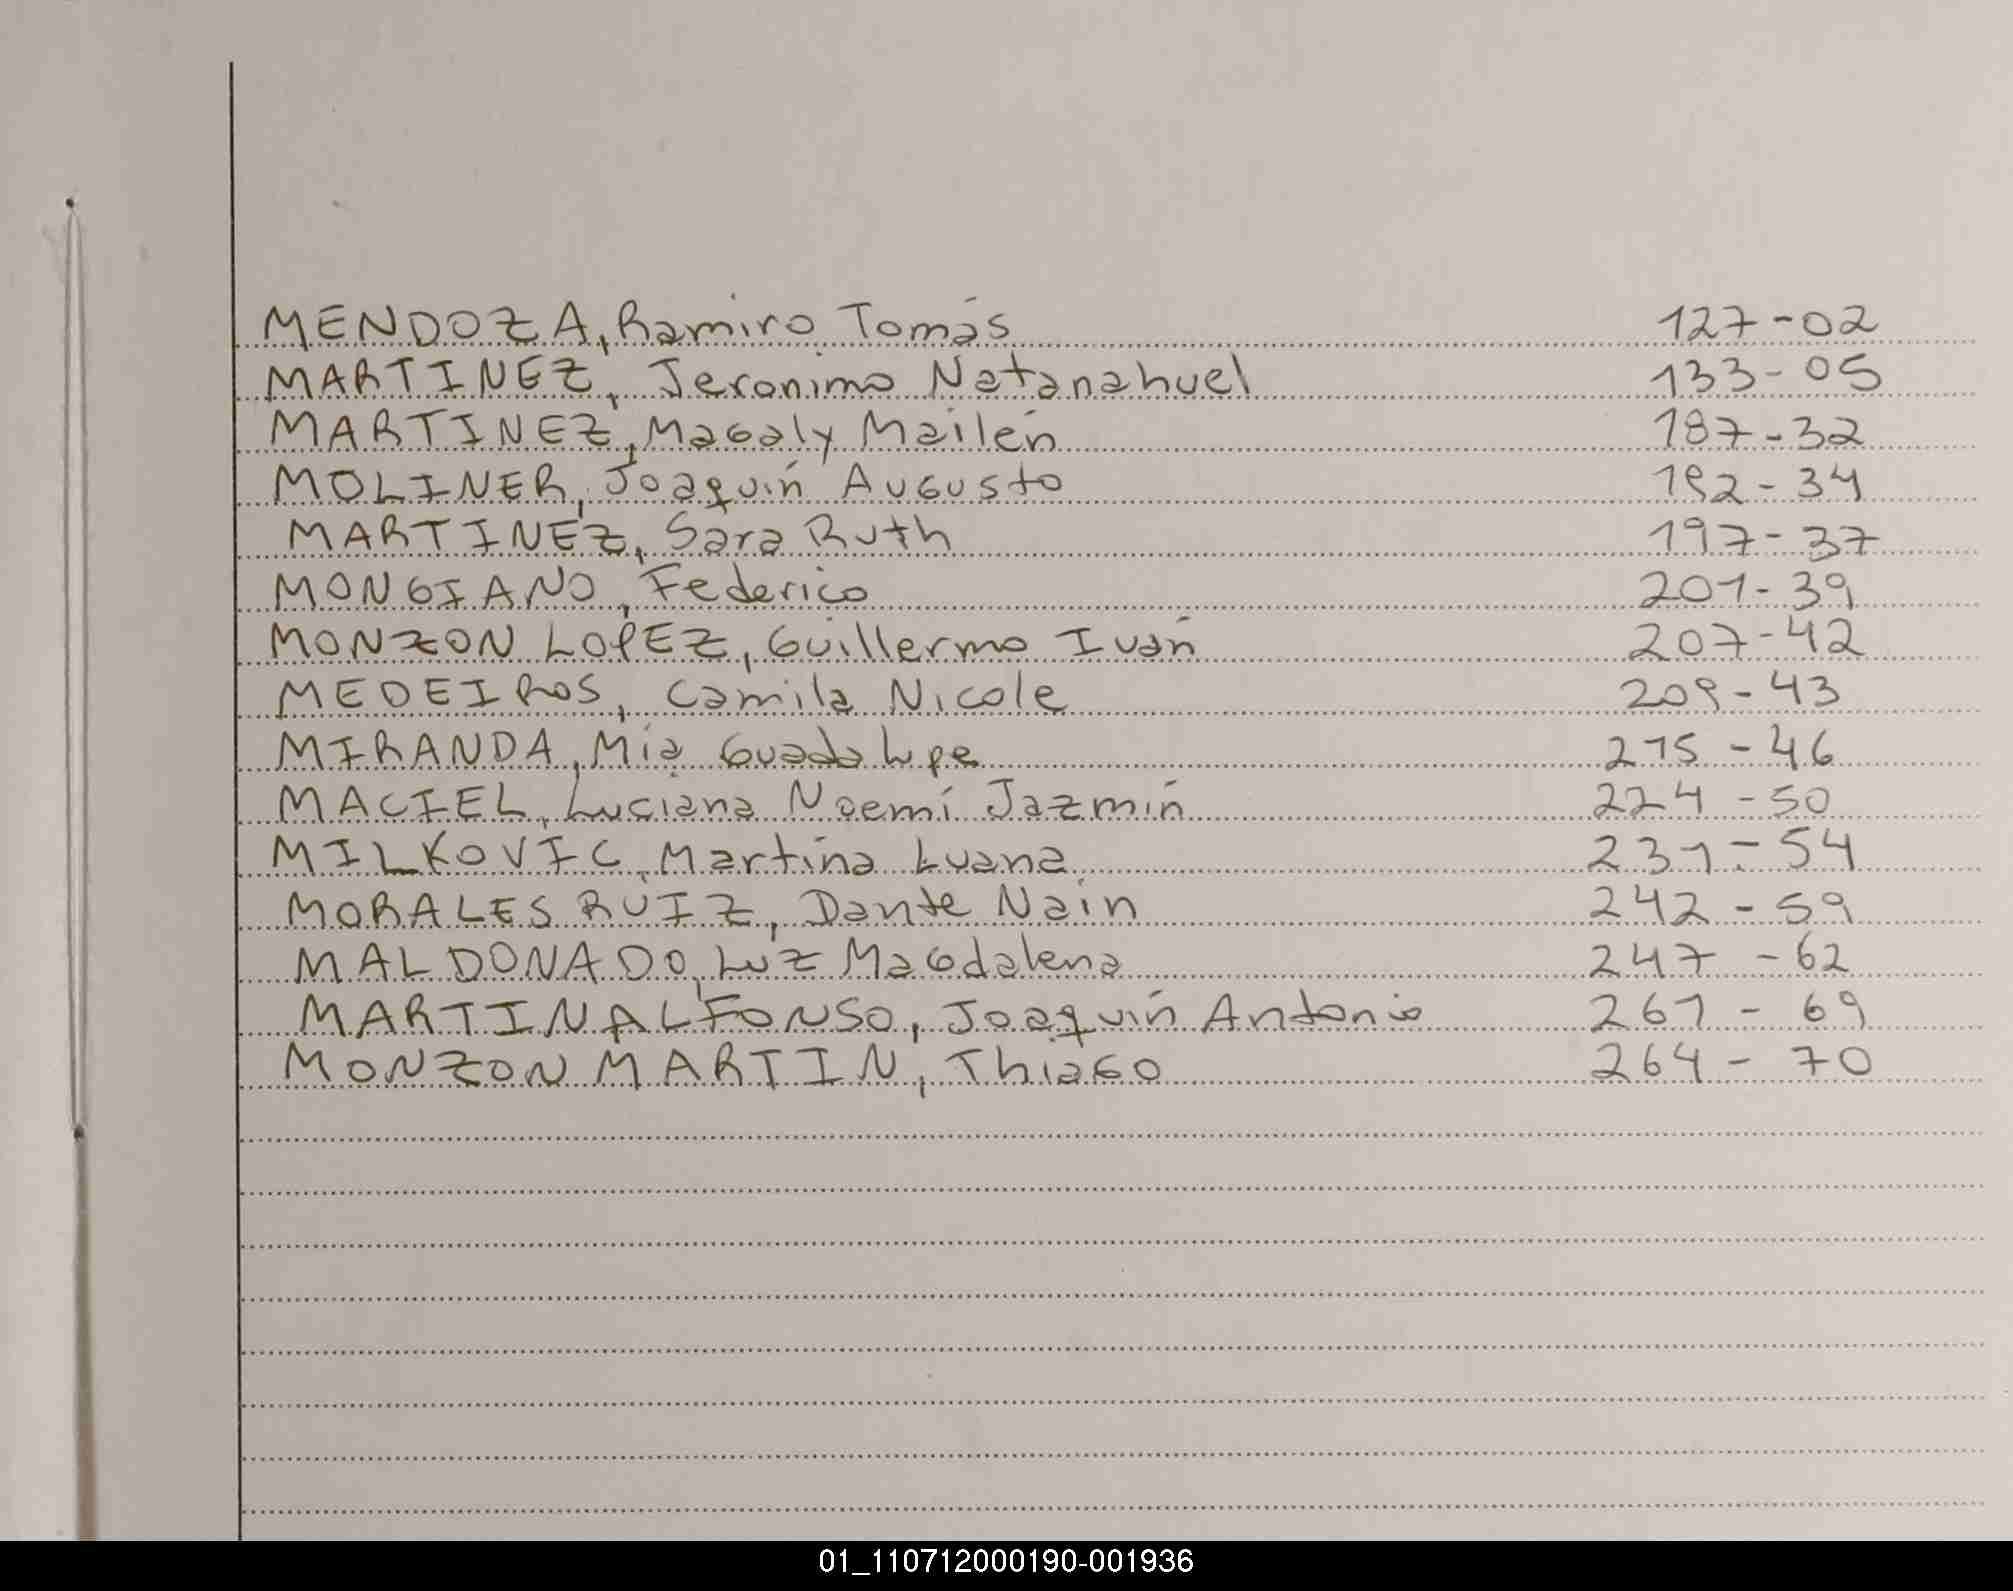 MENDOZA, Ramiro Tomás 127-02
MARTINEZ, Jeronimo Natanahuel 133-05
MARTINEZ, Magaly Mailén 187-32
MOLINER, Joaquín Augusto 192-34
MARTINEZ, Sara Ruth 197-37
MONGIANO, Federico 201-39
MONZON LOPEZ, Guillermo Iván 207-42
MEDEIROS, Camila Nicole 209-43
MIRANDA, Mia Guadalupe 215-46
MACIEL, Luciana Noemí Jazmín 224-50
MILKOVIC, Martina Luana 231-54
MORALES RUIZ, Dante Nain 242-59
MALDONADO, Luz Magdalena 247-62
MARTIN ALFONSO, Joaquín Antonio 261-69
MONZON MARTIN, Thiago 264-70
01_110712000190-001936